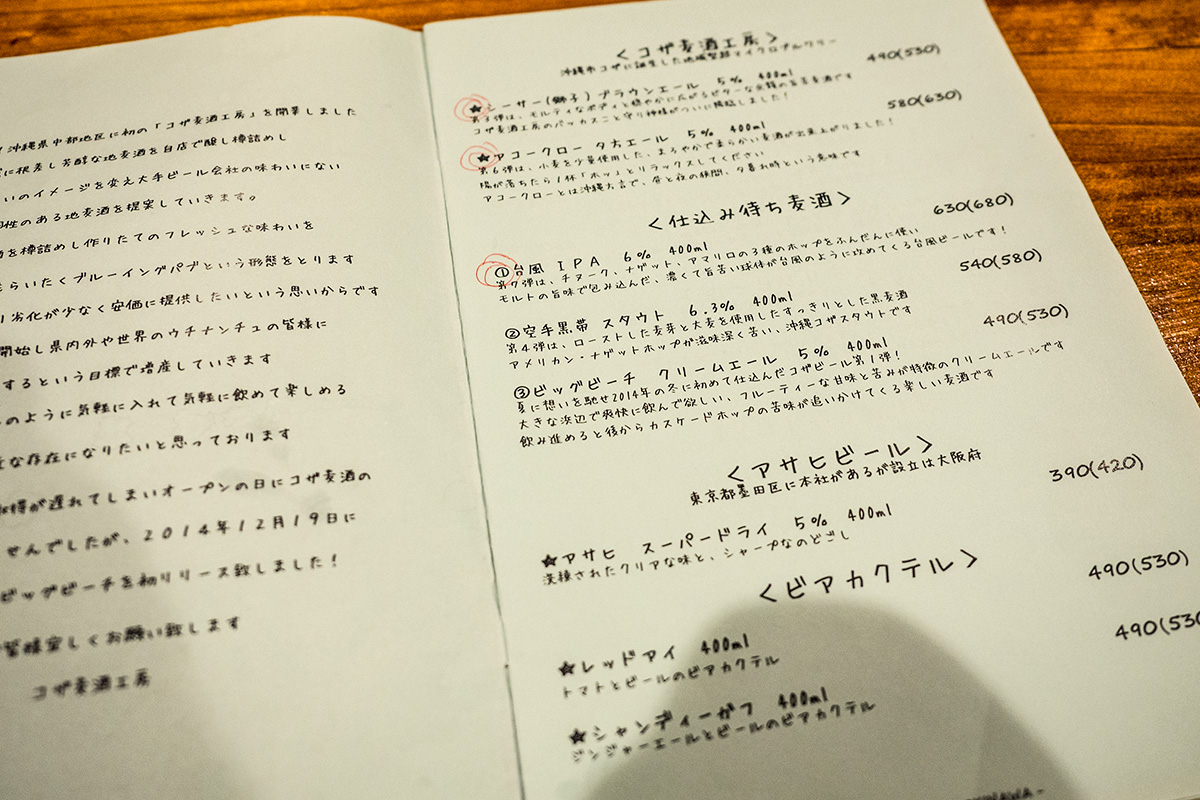 沖縄県中部地区に初の「コザ麦酒工房」を開業しました
に根差し芳醇な地麦酒を自店で醸し樽詰めし
いのイメージを変え大手ビール会社の味わいにない
性のある地麦酒を提案していきます。
を樽詰めし作りたてのフレッシュな味わいを
らいたくブルーイングパブという形態をとります
劣化が少なく安価に提供したいという思いからです
開始し県内外や世界のウチナンチュの皆様に
するという目標で増産していきます
のように気軽に入れて気軽に飲めて楽しめる
な存在になりたいと思っております
取得が遅れてしまいオープンの日にコザ麦酒の
せんでしたが、2014年12月19日に
ビッグビーチを初リリース致しました！
皆様宜しくお願い致します
コザ麦酒工房
＜コザ麦酒工房＞
沖縄市コザに誕生した地域密着マイクロブルワリー
★シーサー(獅子)ブラウンエール 5% 400ml 490(530)
第5弾は、モルティなボディと穏やかに広がるビターな余韻の旨苦麦酒です
コザ麦酒工房のバッカスこと守り神様がついに降臨しました！
★アコークロー 夕方エール 5% 400ml 580(630)
第6弾は、小麦を少量使用した、まろやかで柔らかい麦酒が出来上がりました！
陽が落ちたら1杯「ホッ」とリラックスしてください
アコークローとは沖縄方言で、昼と夜の狭間、夕暮れ時という意味です
＜仕込み待ち麦酒＞
①台風 IPA 6% 400ml 630(680)
第7弾は、チヌーク、ナゲット、アマリロの3種のホップをふんだんに使い
モルトの旨味で包み込んだ、濃くて旨苦い球体が台風のように攻めてくる台風ビールです！
②空手黒帯 スタウト 6.3% 400ml 540(580)
第4弾は、ローストした麦芽と大麦を使用したすっきりとした黒麦酒
アメリカン・ナゲットホップが滋味深く苦い、沖縄コザスタウトです
③ビッグビーチ クリームエール 5% 400ml 490(530)
夏に想いを馳せ2014年の冬に初めて仕込んだコザビール第1弾！
大きな浜辺で爽快に飲んで欲しい、フルーティーな甘味と苦みが特徴のクリームエールです
飲み進めると後からカスケードホップの苦味が追いかけてくる楽しい麦酒です
＜アサヒビール＞
東京都墨田区に本社があるが設立は大阪府
★アサヒ スーパードライ 5% 400ml 390(420)
洗練されたクリアな味と、シャープなのどごし
＜ビアカクテル＞
★レッドアイ 400ml 490(530)
トマトとビールのビアカクテル
★シャンディーガフ 400ml 490(530
ジンジャーエールとビールのビアカクテル